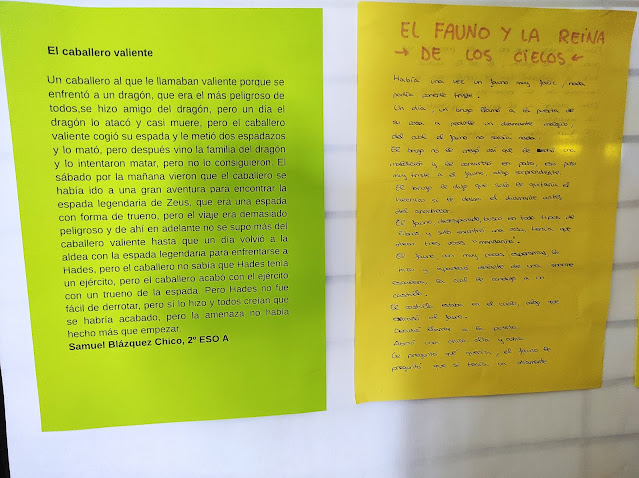 El caballero valiente
Un caballero al que le llamaban valiente porque se
enfrentó a un dragón, que era el más peligroso de
todos,se hizo amigo del dragón, pero un día el
dragón lo atacó y casi muere, pero el caballero
valiente cogió su espada y le metió dos espadazos
y lo mató, pero después vino la familia del dragón
y lo intentaron matar, pero no lo consiguieron. El
sábado por la mañana vieron que el caballero se
había ido a una gran aventura para encontrar la
espada legendaria de Zeus, que era una espada
con forma de trueno, pero el viaje era demasiado
peligroso y de ahí en adelante no se supo más del
caballero valiente hasta que un día volvió a la
aldea con la espada legendaria para enfrentarse a
Hades, pero el caballero no sabía que Hades tenía
un ejército, pero el caballero acabó con el ejército
con un trueno de la espada. Pero Hades no fue
fácil de derrotar, pero sí lo hizo y todos creían que
se habría acabado, pero la amenaza no había
hecho más que empezar.
Samuel Blázquez Chico, 2º ESO A
EL FAUNO Y LA REINA
→ DE LOS CIELOS ←
Había una vez un fauno muy feliz, nada
podía ponerle triste.
Un día, un brujo llamó a la puerta de
su casa a pedirle un diamante mágico,
del cual el fauno no sabía nada.
El brujo no le creyó así que le una
maldición y le convirtió en
muy triste a el fauno, algo sorprendente.
El brujo le dijo que solo le quitaría el
si le daban el diamante antes
del anochecer.
El fauno desesperado, buscó en todo tipo de
libros y solo encontró una cosa, tenía que
decir tres veces
El fauno con muy pocas esperanzas, lo
hizo y apareció delante de una enorme
escalera, la cual le condujo a un
castillo.
El castillo estaba en el cielo, algo que
al fauno.
llamar a la puerta
Abrió una chica alta y
Le preguntó que quería, el fauno le
preguntó que si tenía un diamante